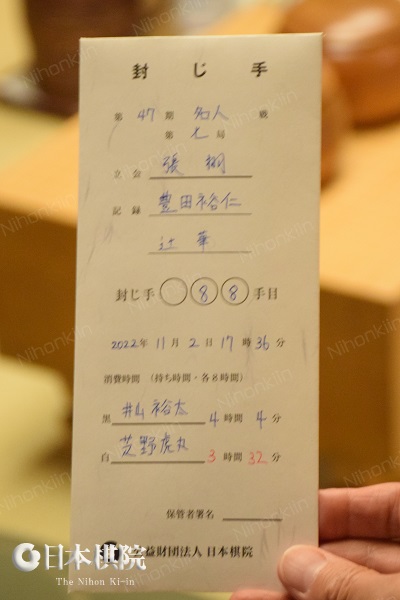 封じ手
第 47 期 名人 戦
第 七 局
立会 張 栩
記録 豊田裕仁
辻 華
封じ手 88 手目
2022年 11月 2日 17時 36分
消費時間 (持ち時間・各8時間)
黒 井山裕太 4時間 4分
白 芝野虎丸 3時間 32分
保管者署名
公益財団法人 日本棋院
日本棋院
The Nihon Ki-in